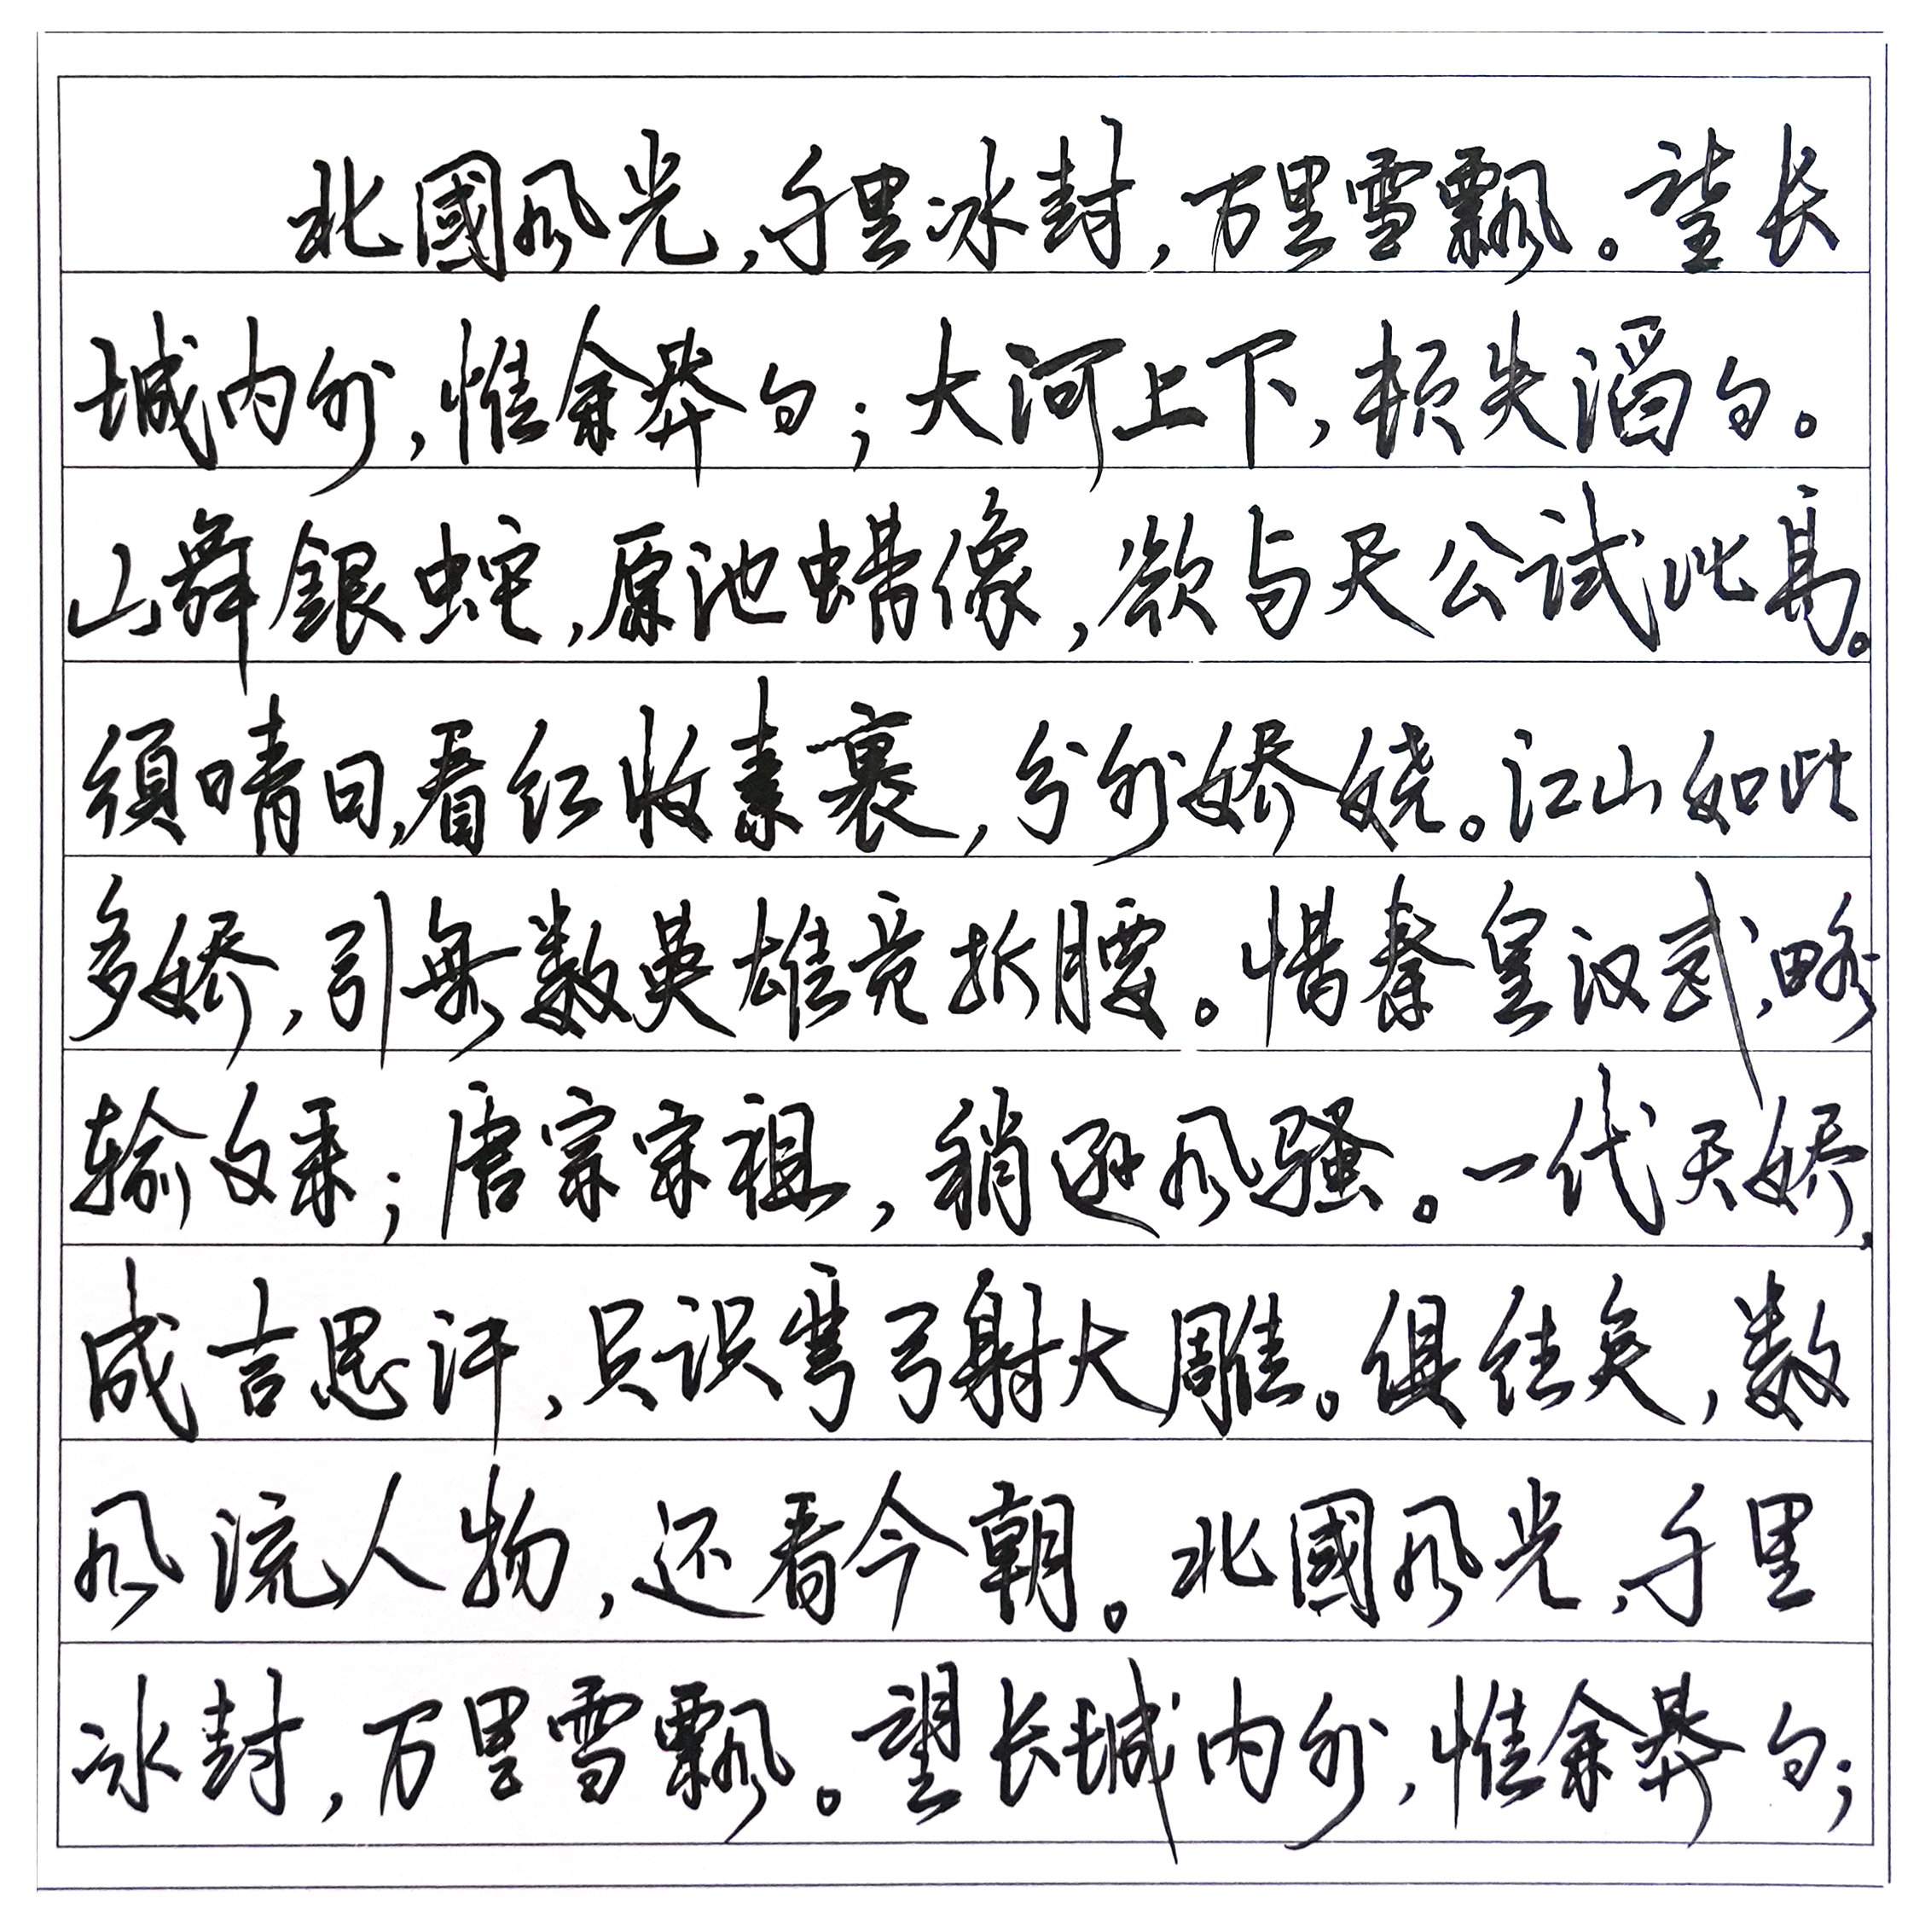 北國风光,千里冰封,万里雪飘。望长
城内外,惟余莽莽;大河上下,顿失滔滔。
山舞銀蛇,原池蜡像,欲与天公试比高。
須晴日,看红收素裹,分外娇娆。江山如此
多娇,引無数英雄竞折腰。惜秦皇汉武,略
输文采;唐宗宋祖,稍逊风骚。一代天娇,
成吉思汗,只识弯弓射大雕。俱往矣,数
风流人物,还看今朝。北國风光,千里
冰封,万里雪飘。望长城内外,惟余莽莽;